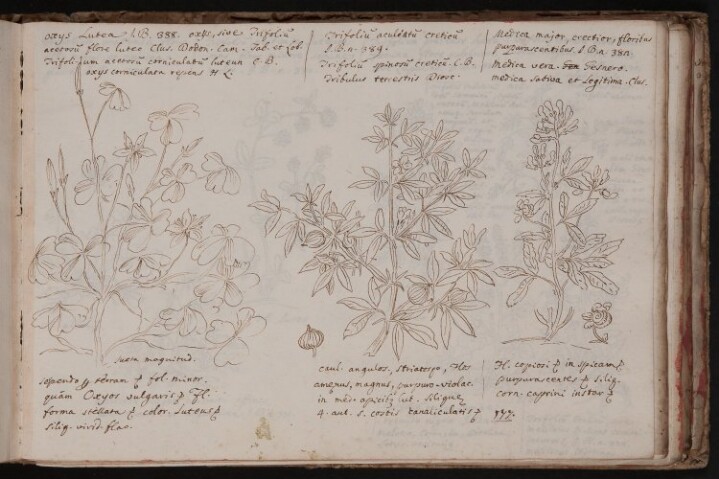 oxys Lutea I.B. 388. oxys, sive Trifoliū
acetosū flore luteo Clus. Dodon. Cam. Tab. et Lob.
Trifolium acetosū corniculatū luteum C.B.
oxys corniculata repens H.L.
Trifoliū aculeatū creticū
I.B.n. 389.
Trifoliū spinosū creticū. C.B.
Tribulus terrestris Diosc.
Medica major, erectior, floribus
purpurascentibus. I.B.n 380.
Medica vera. Gesnero.
medica sativa et Legitima. Clus.
justa magnitud.
terram fol. minor.
quàm Oxyos vulgaris Fl.
forma stellata color. Luteus
siliq. virid. flac.
caul. angulos, striatusq, flos
amænus, magnus, purpuro-violac.
in siliquæ
4. aut. 5. costis canaliculatis
Fl. copiosi in spicam
purpurascentes siliq.
corn. caprini instar
177.